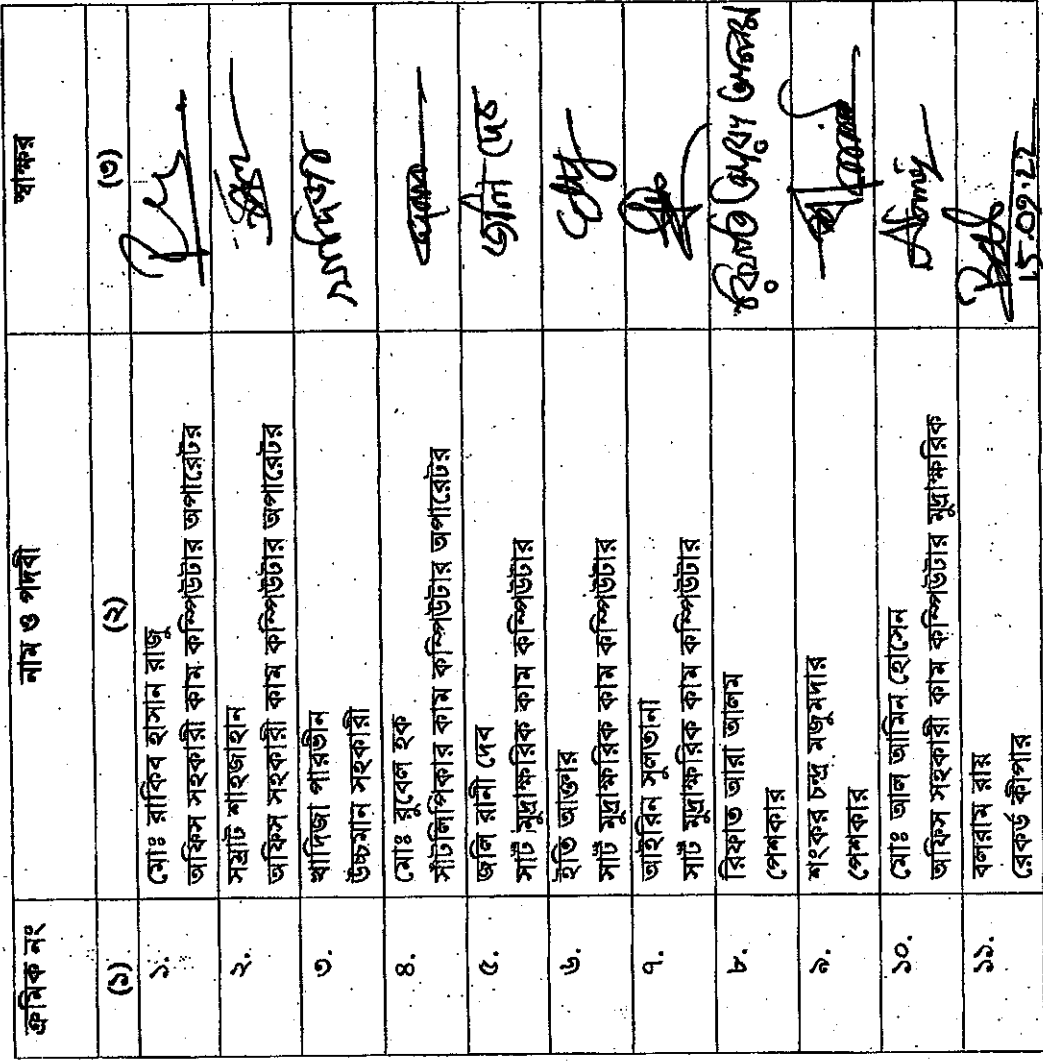 ক্রমিক নং নাম ও পদবী স্বাক্ষর
(১) (২) (৩)
১. মোঃ রাকিব হাসান রাজু
অফিস সহকারী কাম কম্পিউটার অপারেটর
২. সম্রাট শাহজাহান
অফিস সহকারী কাম কম্পিউটার অপারেটর
৩. খাদিজা পারভীন খাদিজা
উচ্চমান সহকারী
৪. মোঃ রুবেল হক
সাঁটলিপিকার কাম কম্পিউটার অপারেটর
৫. জলি রানী দেব
সাট মুদ্রাক্ষরিক কাম কম্পিউটার
৬. ইতি আক্তার
সাট মুদ্রাক্ষরিক কাম কম্পিউটার
৭. আইরিন সুলতানা
সাট মুদ্রাক্ষরিক কাম কম্পিউটার
৮. রিফাত আরা আলম
পেশকার
৯. শংকর চন্দ্র মজুমদার
পেশকার
১০. মোঃ আল আমিন হোসেন
অফিস সহকারী কাম কম্পিউটার মুদ্রাক্ষরিক
১১. বলরাম রায়
রেকর্ড কীপার 15.09.22